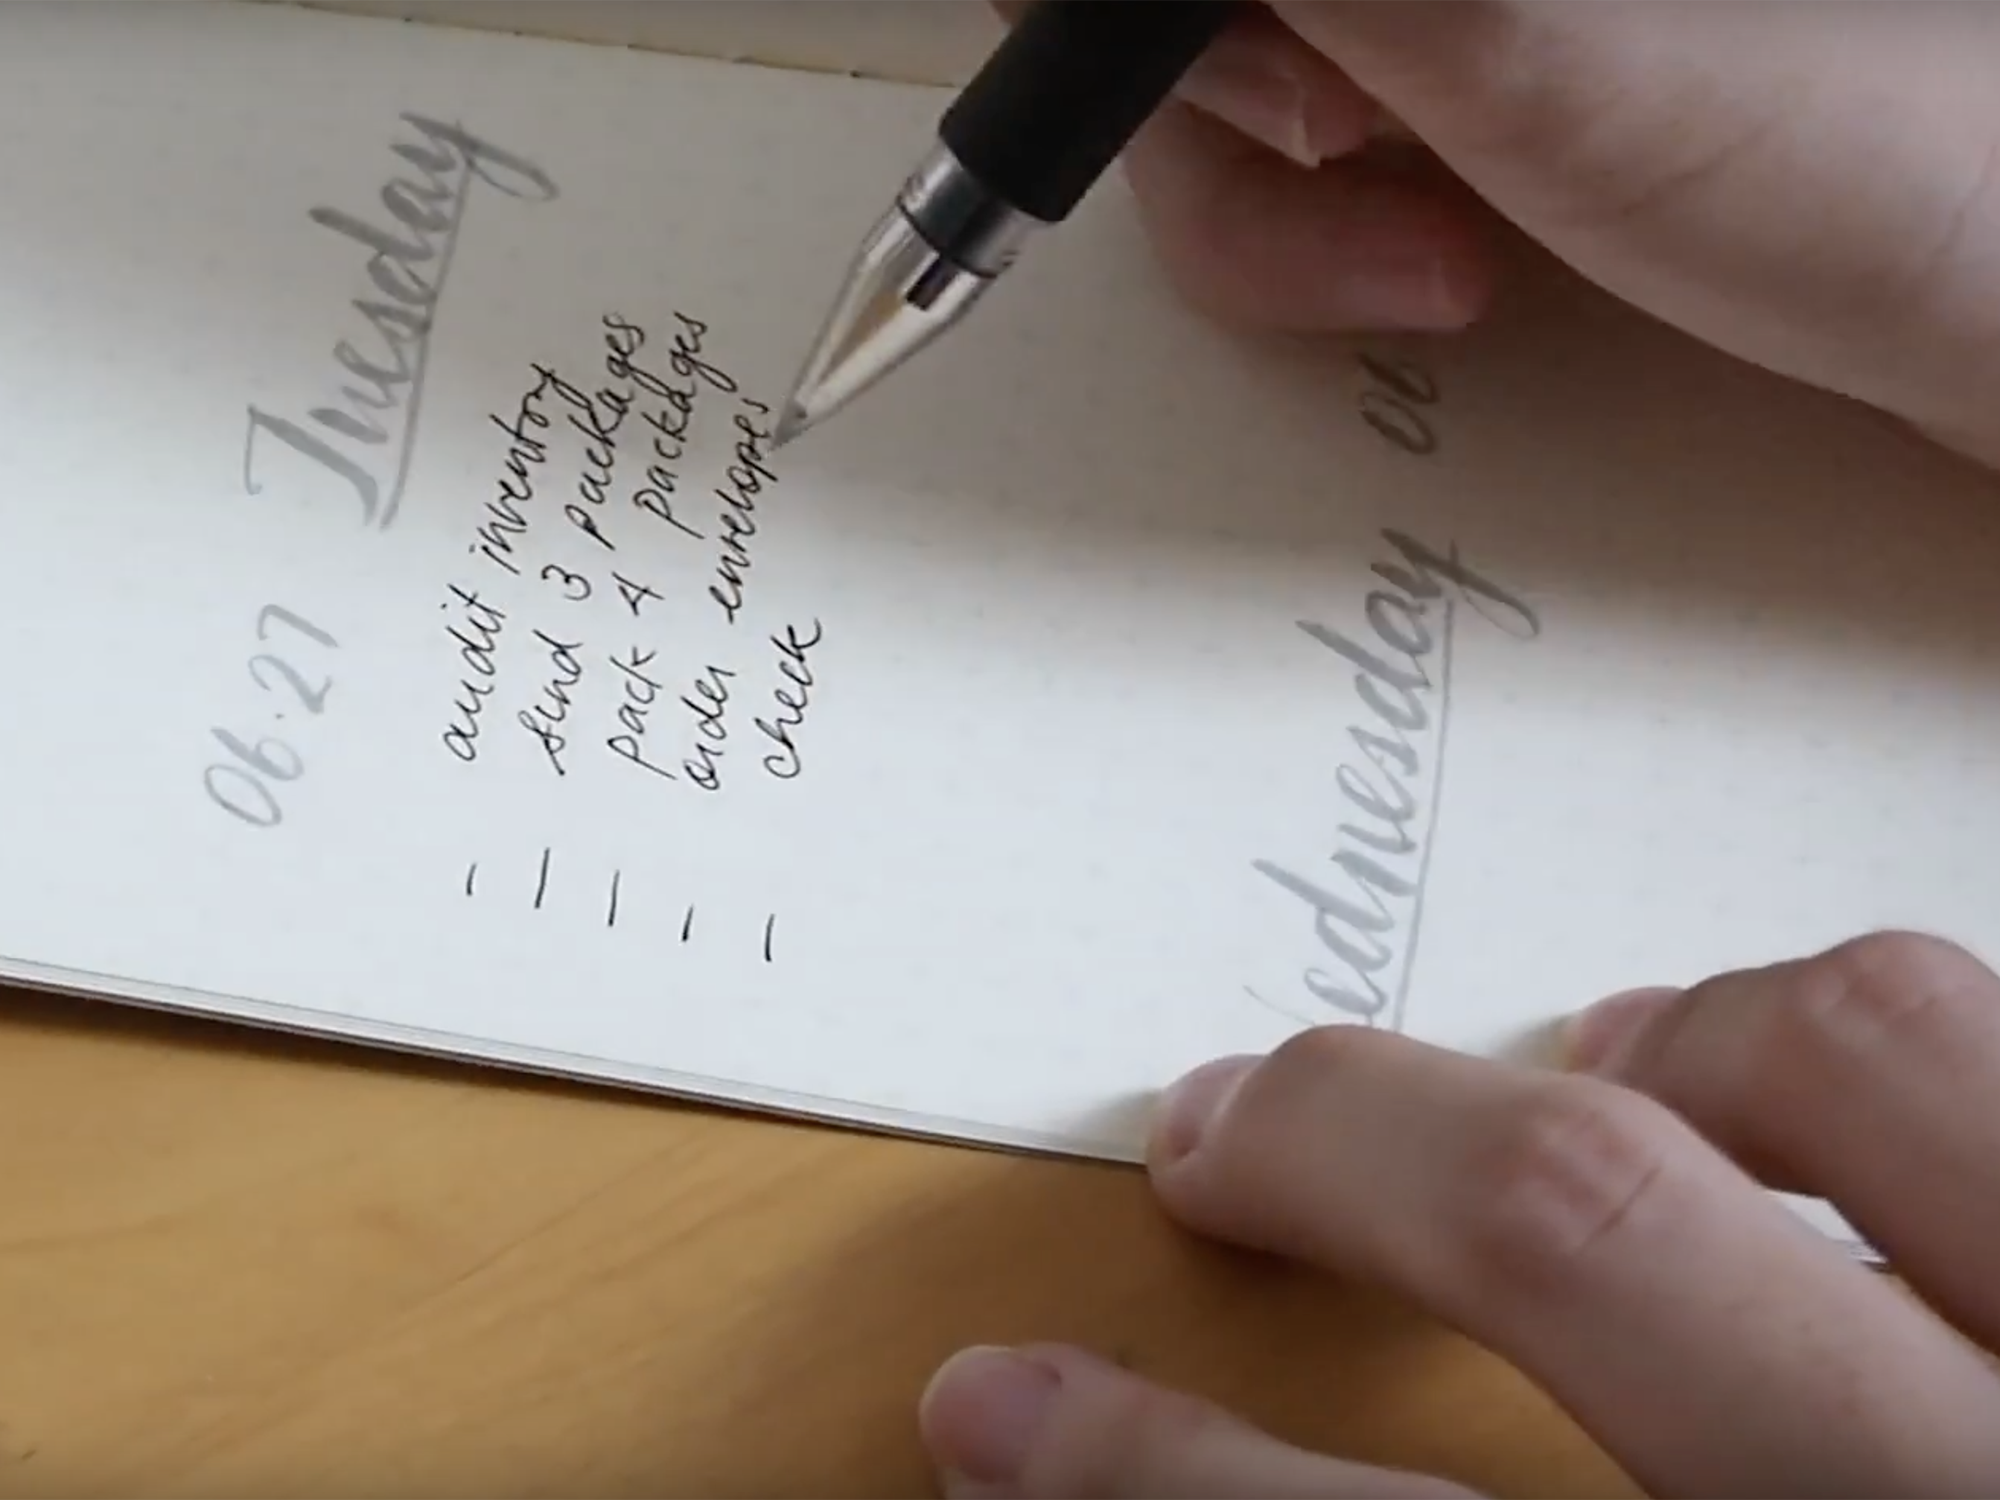 06.27 Tuesday
- audit inventory
- send 3 packages
- pack 4 packages
- order envelopes
- check
ednesday 06